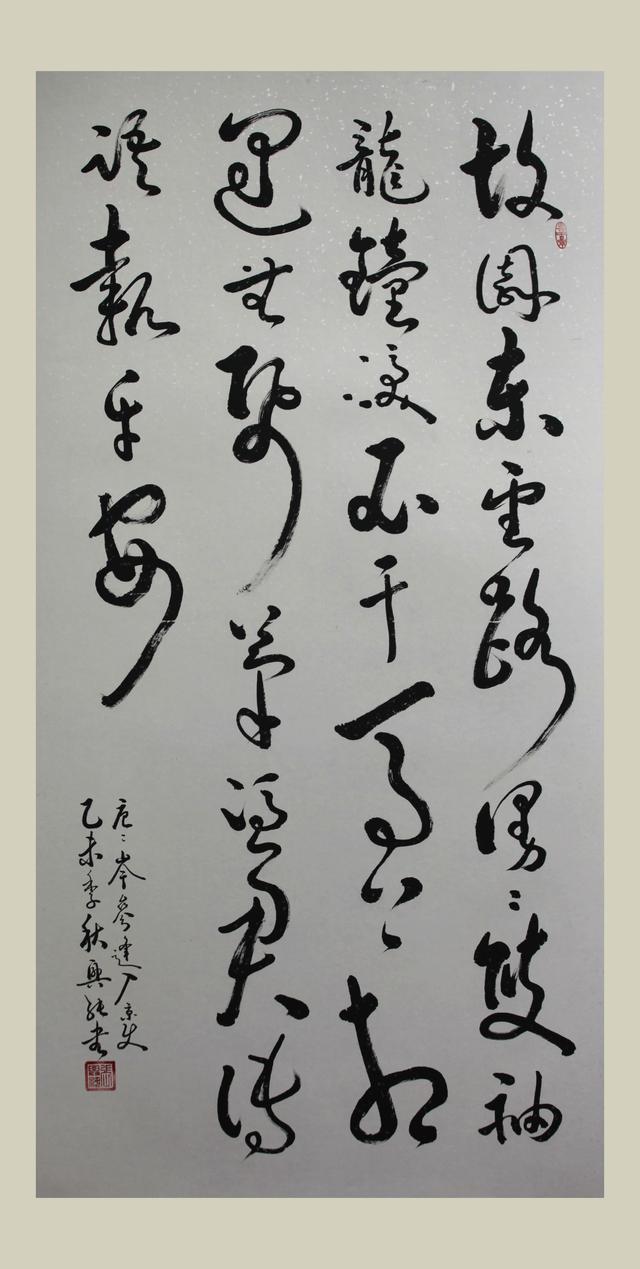 故園東望路漫〻雙袖
龍鐘淚不干馬上相
逢無紙筆憑君傳
語報平安
唐岑參逢入京使
乙未季秋興書